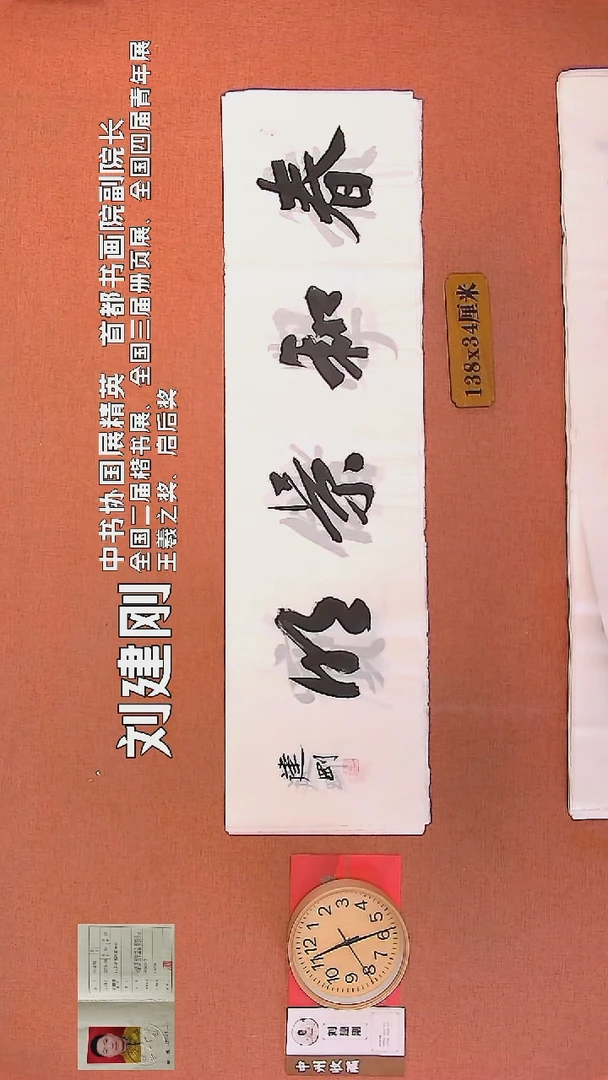 刘建刚
中书协国展精英 首都书画院副院长
全国二届楷书展、全国三届册页展、全国四届青年展
王羲之奖、启后奖
春和景明
建刚
138x34厘米
12
1
2
3
4
5
6
7
8
9
10
11
刘建刚
中州收藏